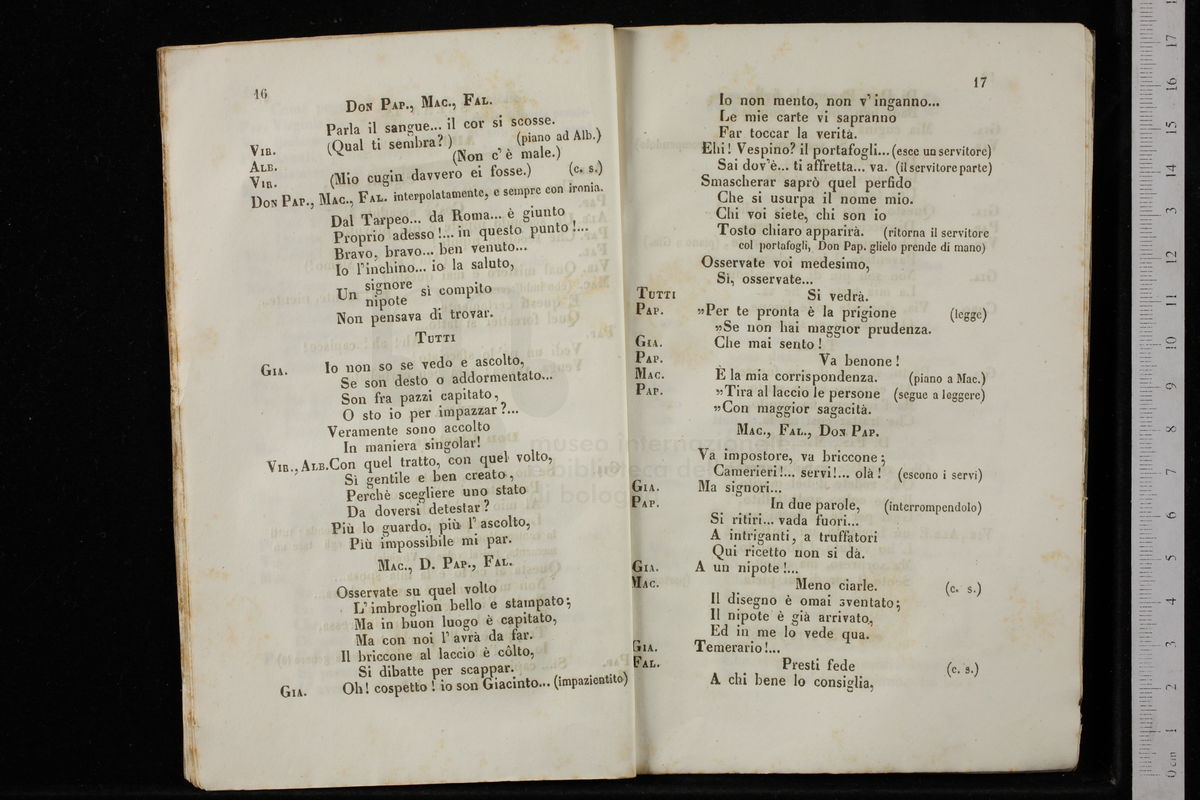 16
Don Pap., Mac., Fal.
Parla il sangue... il cor si scosse.
Vir. (Qual ti sembra?) (piano ad Alb.)
Alb. (Non c'è male.)
Vir. (Mio cugin davvero ei fosse.) (c. s.)
Don Pap., Mac., Fal. interpolatamente, e sempre con ironia.
Dal Tarpeo... da Roma... è giunto
Proprio adesso!... in questo punto!...
Bravo, bravo... ben venuto...
Io l'inchino... io la saluto,
Un signore sì compito
nipote
Non pensava di trovar.
Tutti
Gia. Io non so se vedo e ascolto,
Se son desto o addormentato...
Son fra pazzi capitato,
O sto io per impazzar?...
Veramente sono accolto
In maniera singolar!
Vir., Alb. Con quel tratto, con quel volto,
Sì gentile e ben creato,
Perchè scegliere uno stato
Da doversi detestar?
Più lo guardo, più l'ascolto,
Più impossibile mi par.
Mac., D. Pap., Fal.
Osservate su quel volto
L'imbroglion bello e stampato;
Ma in buon luogo è capitato,
Ma con noi l'avrà da far.
Il briccone al laccio è côlto,
Si dibatte per scappar.
Gia. Oh! cospetto! io son Giacinto... (impazientito)
17
Io non mento, non v'inganno...
Le mie carte vi sapranno
Far toccar la verità.
Ehi! Vespino? il portafogli... (esce un servitore)
Sai dov'è... ti affretta... va. (il servitore parte)
Smascherar saprò quel perfido
Che si usurpa il nome mio.
Chi voi siete, chi son io
Tosto chiaro apparirà. (ritorna il servitore
col portafogli, Don Pap. glielo prende di mano)
Osservate voi medesimo,
Sì, osservate...
Tutti Si vedrà.
Pap. »Per te pronta è la prigione (legge)
»Se non hai maggior prudenza.
Gia. Che mai sento!
Pap. Va benone!
Mac. È la mia corrispondenza. (piano a Mac.)
Pap. »Tira al laccio le persone (segue a leggere)
»Con maggior sagacità.
Mac., Fal., Don Pap.
Va impostore, va briccone;
Camerieri!... servi!... olà! (escono i servi)
Gia. Ma signori...
Pap. In due parole, (interrompendolo)
Si ritiri... vada fuori...
A intriganti, a truffatori
Qui ricetto non si dà.
Gia. A un nipote!...
Mac. Meno ciarle. (c. s.)
Il disegno è omai sventato;
Il nipote è già arrivato,
Ed in me lo vede qua.
Gia. Temerario!...
Fal. Presti fede (c. s.)
A chi bene lo consiglia,
museo internazionale
e biblioteca de
di bolog